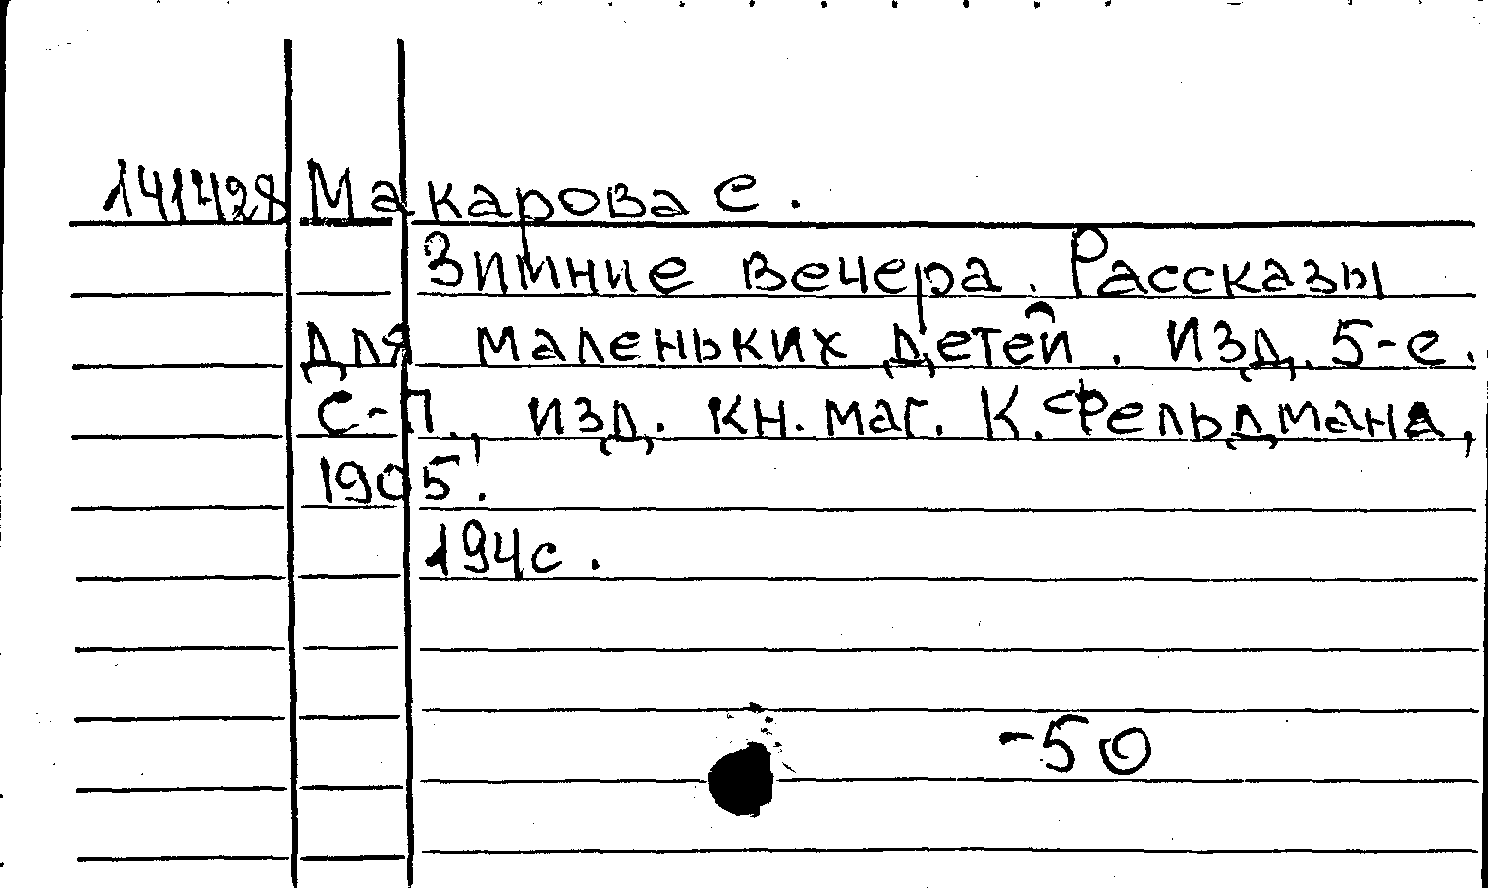 141428 Макарова С.
Зимние вечера. Рассказы
для маленьких детей. Изд. 5-е.
С-П., изд. кн. маг. К. Фельдмана,
1905.
194с.
-50